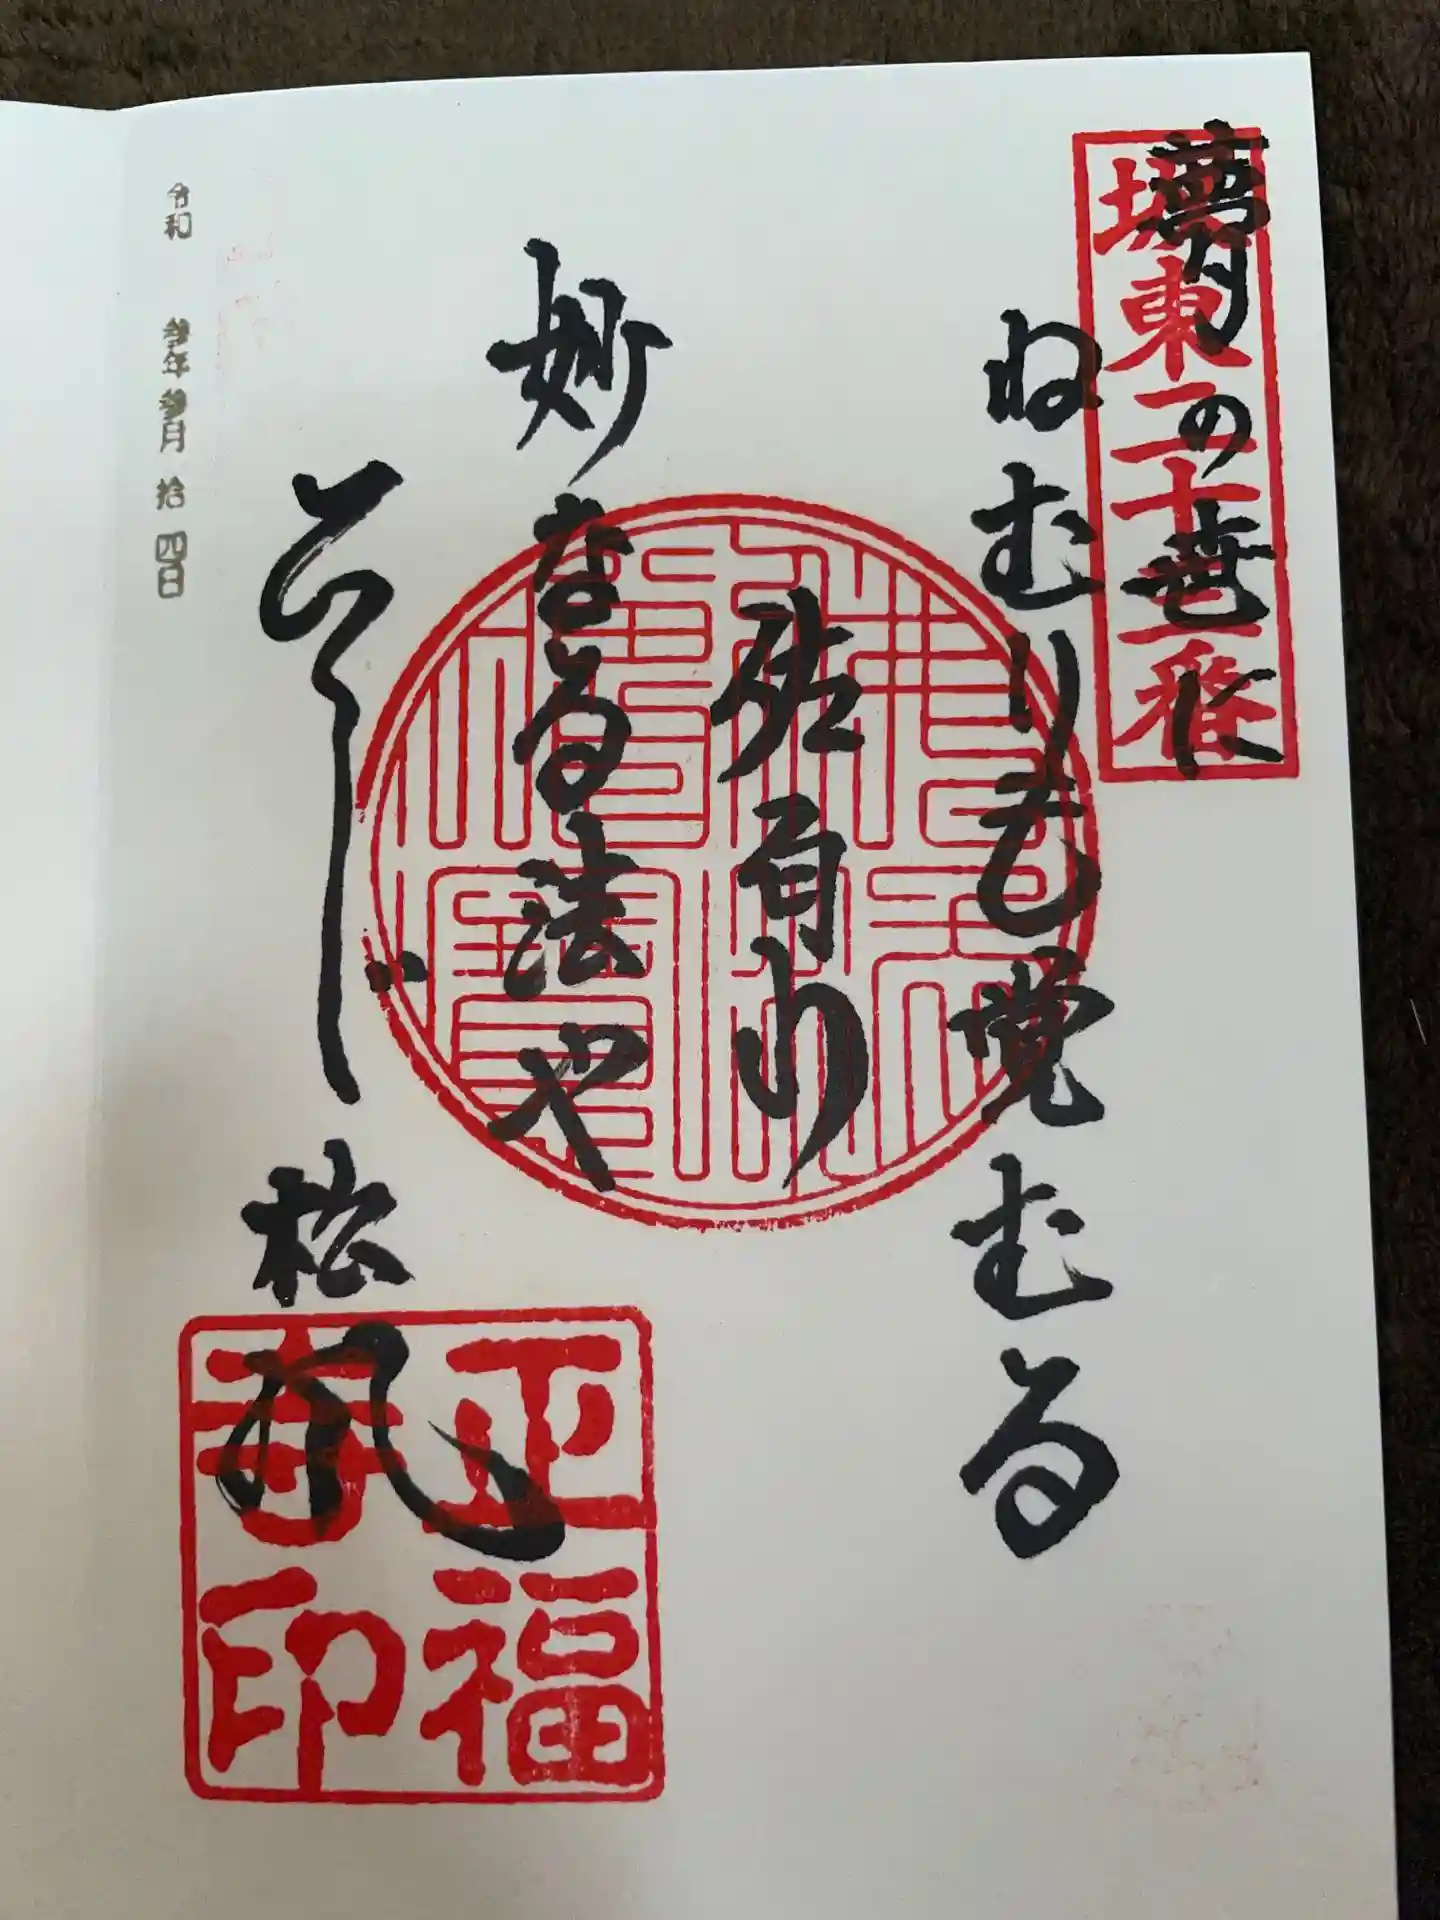 坂東二十三番
夢の世に
ねむりも覚むる
佐白山
妙なる法や
ひゞく松風
正福
寺印
令和 参年参月拾四日